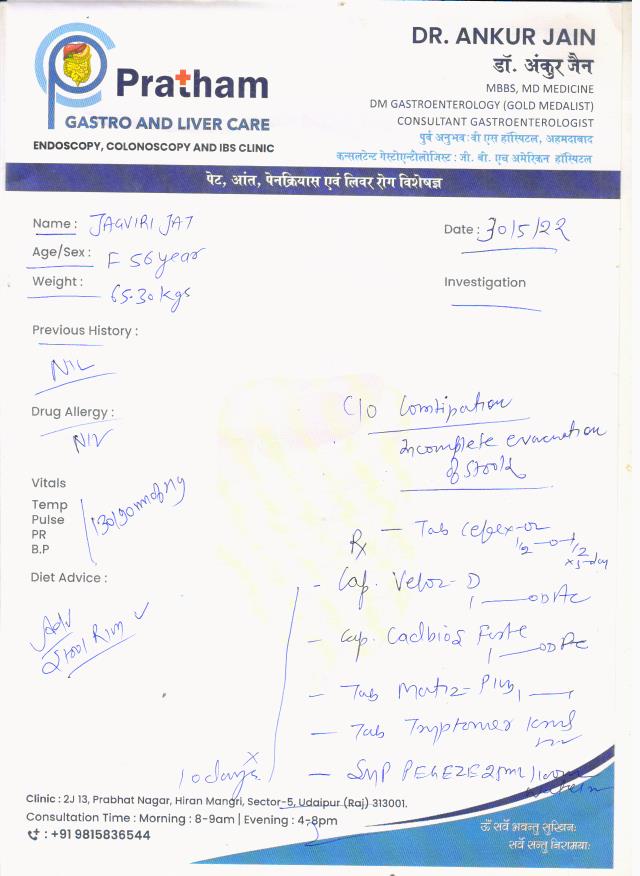 DR. ANKUR JAIN
डॉ. अंकुर जैन
MBBS, MD MEDICINE
DM GASTROENTEROLOGY (GOLD MEDALIST)
CONSULTANT GASTROENTEROLOGIST
पुर्व अनुभव: वी एस हॉस्पिटल, अहमदाबाद
कन्सलटेन्ट गेस्टोएन्टीलोजिस्ट : जी. बी. एच अमेरिकन हॉस्पिटल
Pratham
GASTRO AND LIVER CARE
ENDOSCOPY, COLONOSCOPY AND IBS CLINIC
पेट, आंत, पेनक्रियास एवं लिवर रोग विशेषज्ञ
Name : JAGVIRI JAT
Date : 30/5/22
Age/Sex : F 56 year
Weight : 65.30 kgs
Investigation
Previous History :
NIL
Drug Allergy :
NIL
C/O Constipation
Incomplete evacuation
of stools
Vitals
Temp
Pulse
PR
B.P
130/90 mm of Hg
Rx — Tab
1/2 — 0 — 1/2
x 5-day
Diet Advice :
Adv
Stool
— Cap. Veloz-D
1 — OD AC
— Cap. Cadbios Forte
1 — OD PC
— Tab 1 — 1
— Tab Tryptomer
— SYP PEGEZE 25ml
10 days x
Clinic : 2J 13, Prabhat Nagar, Hiran Mangri, Sector-5, Udaipur (Raj) 313001.
Consultation Time : Morning : 8-9am | Evening : 4-8pm
: +91 9815836544
ॐ सर्वे भवन्तु सुखिनः
सर्वे सन्तु निरामयाः